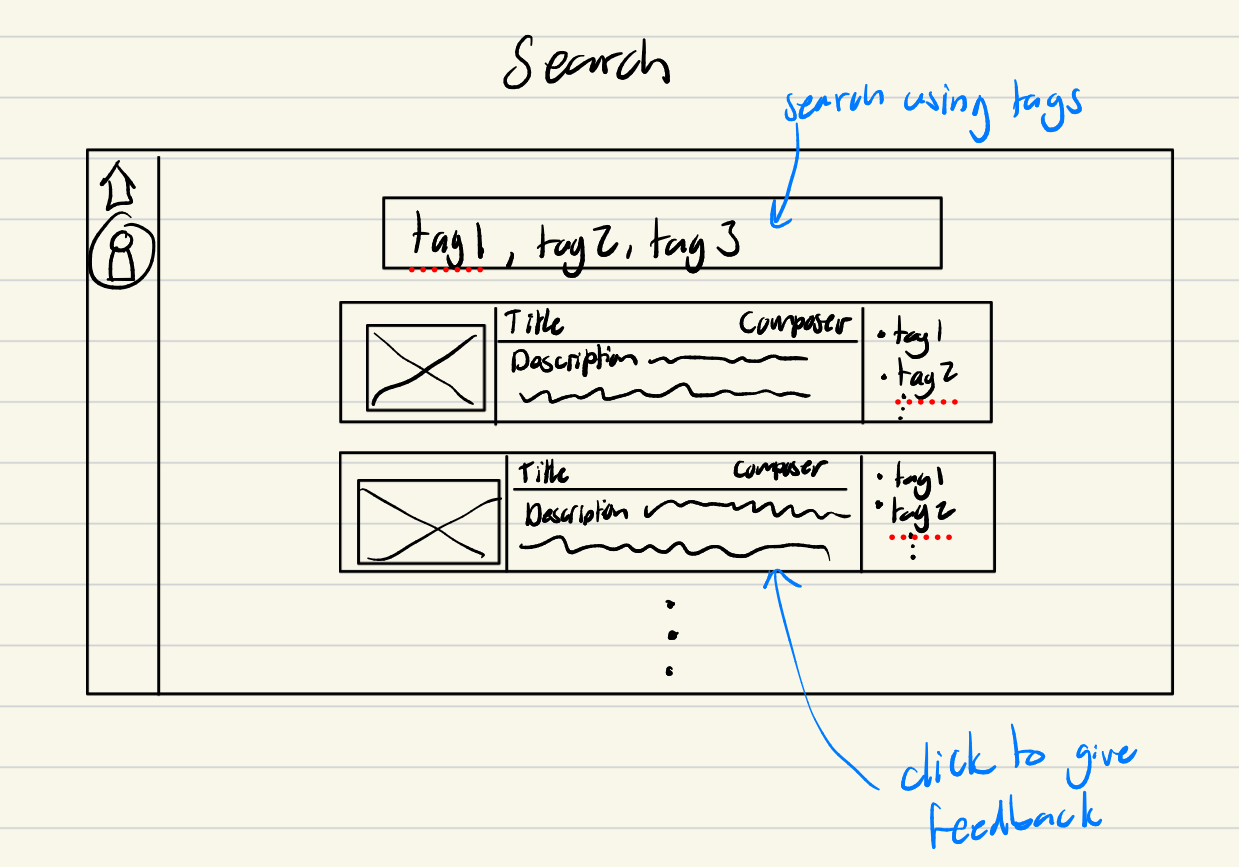 Search
search using tags
tag1, tag2, tag3
Title Composer
Description
• tag1
• tag2
Title Composer
Description
• tag1
• tag2
click to give
feedback